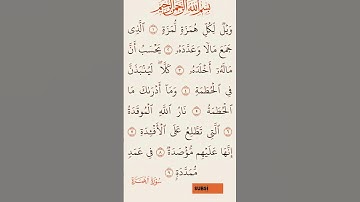 بِسْمِ ٱللَّهِ ٱلرَّحْمَٰنِ ٱلرَّحِيمِ
وَيْلٌ لِّكُلِّ هُمَزَةٍ لُّمَزَةٍ ١ ٱلَّذِى
جَمَعَ مَالًا وَعَدَّدَهُۥ ٢ يَحْسَبُ أَنَّ
مَالَهُۥٓ أَخْلَدَهُۥ ٣ كَلَّا ۖ لَيُنۢبَذَنَّ
فِى ٱلْحُطَمَةِ ٤ وَمَآ أَدْرَىٰكَ مَا
ٱلْحُطَمَةُ ٥ نَارُ ٱللَّهِ ٱلْمُوقَدَةُ
٦ ٱلَّتِى تَطَّلِعُ عَلَى ٱلْأَفْـِٔدَةِ ٧
إِنَّهَا عَلَيْهِم مُّؤْصَدَةٌ ٨ فِى عَمَدٍ
مُّمَدَّدَةٍۭ ٩
سُورَةُ الهُمَزَة
SUBSI